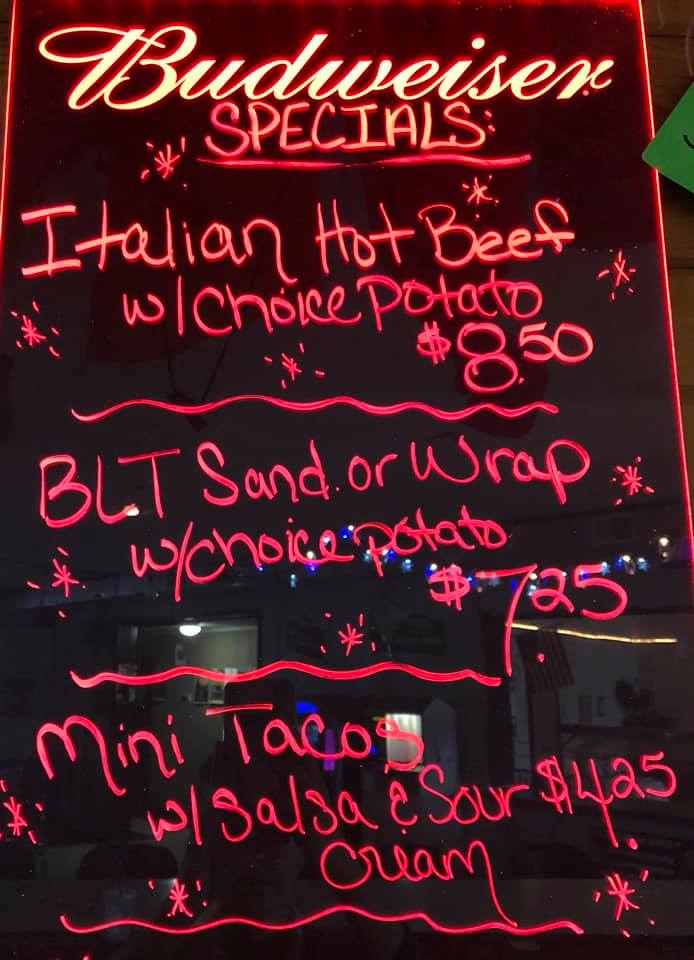 Budweiser
SPECIALS:
Italian Hot Beef
w/choice potato
$8.50
BLT Sand. or Wrap
w/choice potato
$7.25
Mini Tacos
w/ Salsa & Sour $4.25
Cream